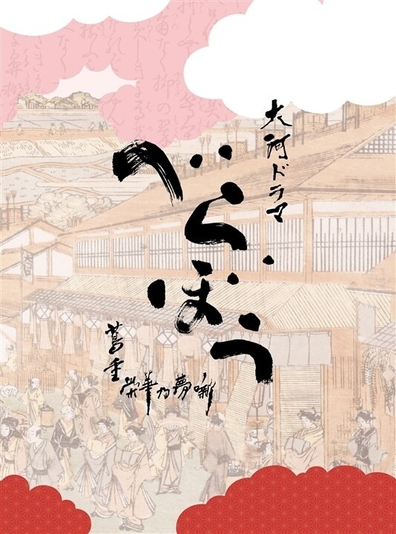 大河ドラマ
べらぼう
蔦重
栄華乃夢噺